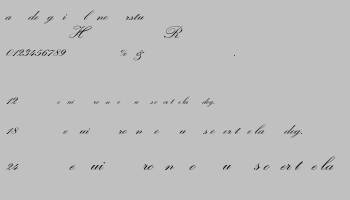 a de g i l no rstu
H R
0123456789 % & .
12 e ui ro n o u so ert ela dog.
18 e ui ro n o u so ert ela dog.
24 e ui ro n o u so ert ela